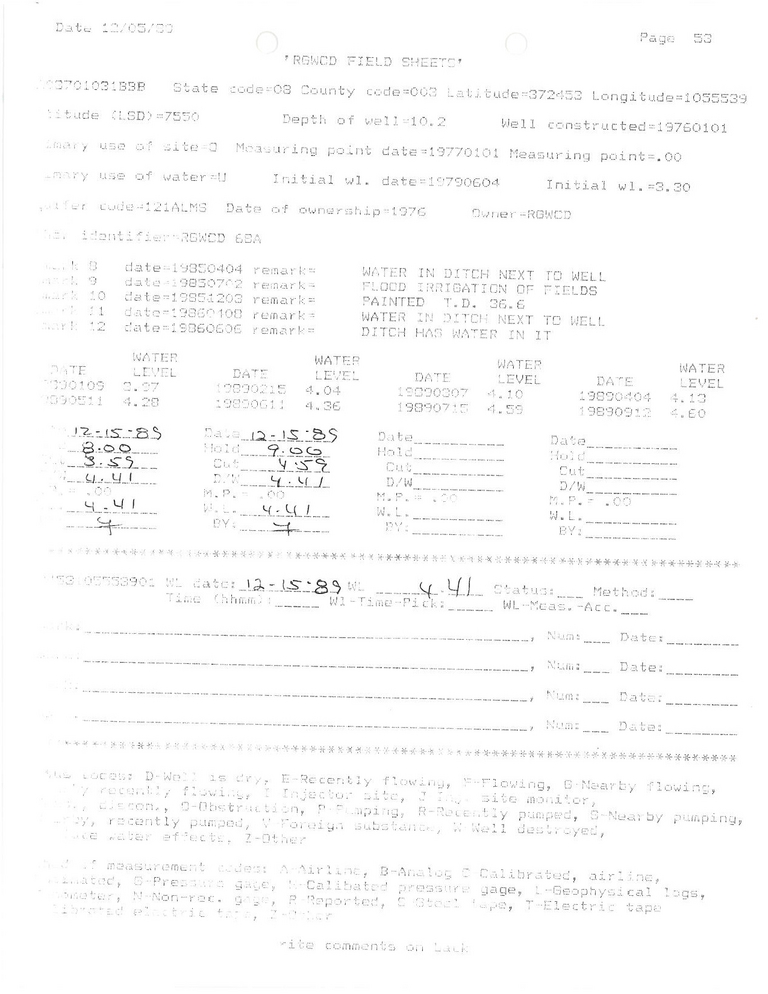 Date 12/05/89 Page 53
'RGWCD FIELD SHEETS'
03701031BBB State code=08 County code=003 Latitude=372453 Longitude=1055539
titude (LSD)=7550 Depth of well=10.2 Well constructed=19760101
imary use of site=O Measuring point date=19770101 Measuring point=.00
imary use of water=U Initial wl. date=19790604 Initial wl.=3.30
uifer code=121ALMS Date of ownership=1976 Owner=RGWCD
identifier=RGWCD 68A
mark 8 date=19850404 remark= WATER IN DITCH NEXT TO WELL
mark 9 date=19850702 remark= FLOOD IRRIGATION OF FIELDS
mark 10 date=19851203 remark= PAINTED T.D. 36.6
mark 11 date=19860408 remark= WATER IN DITCH NEXT TO WELL
mark 12 date=19860606 remark= DITCH HAS WATER IN IT
WATER WATER WATER WATER
DATE LEVEL DATE LEVEL DATE LEVEL DATE LEVEL
9890109 3.97 19890215 4.04 19890307 4.10 19890404 4.13
9890511 4.28 19890611 4.36 19890715 4.59 19890912 4.60
12-15-89 Date 12-15-89 Date Date
8.00 Hold 9.00 Hold Hold
3.59 Cut 4.59 Cut Cut
4.41 D/W 4.41 D/W D/W
= .00 M.P.= .00 M.P.= .00 M.P.= .00
4.41 W.L. 4.41 W.L. W.L.
BY: BY: BY:
********************************************************************************
53105553901 WL date: 12-15-89 WL 4.41 Status:___ Method:____
Time (hhmm):_____ Wl-Time-Pick:_____ WL-Meas.-Acc.___
, Num:___ Date:________
, Num:___ Date:________
, Num:___ Date:________
, Num:___ Date:________
********************************************************************************
codes: D-Well is dry, E-Recently flowing, F-Flowing, G-Nearby flowing,
recently flowing, I Injector site, J site monitor,
discon., O-Obstruction, P-Pumping, R-Recently pumped, S-Nearby pumping,
recently pumped, V Foreign substance, W Well destroyed,
water effects, Z-Other
of measurement codes: A-Airline, B-Analog C Calibrated, airline,
imated, G-Pressure gage, H-Calibated pressure gage, L-Geophysical logs,
ometer, N-Non-rec. gage, R-Reported, S Steel tape, T-Electric tape
librated electric tape, Z-Other
rite comments on back